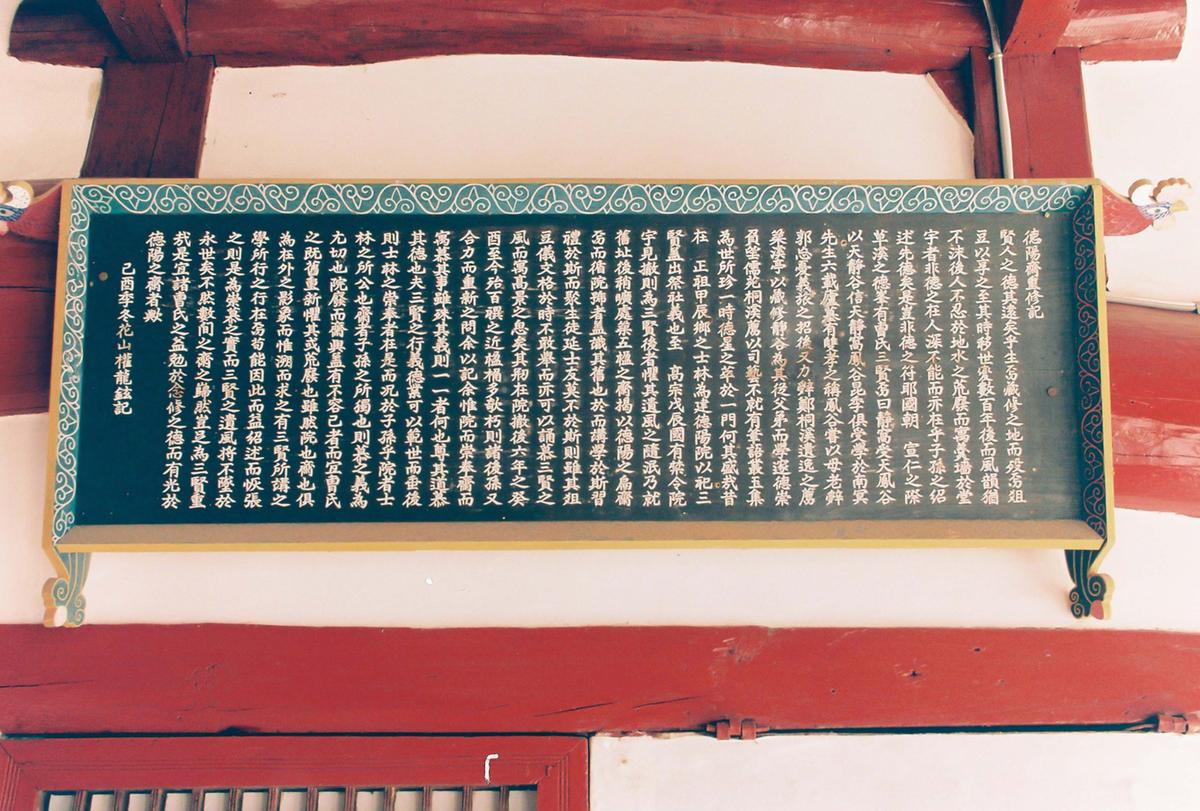 德陽齋重修記
賢人之德其遠矣乎生而藏修之地而歿而俎
豆以享之至其時移世變數百年後而風韻猶
不沫後人不忍於地水之荒廢而寓羹墻於堂
宇者非德之在人深不能而亦在乎子孫之紹
述先德矣是豈非德之符耶國朝 宣仁之際
草溪之德峯有曺民三賢焉曰靜窩受天鳳谷
以天靜谷信天靜窩鳳谷昆季俱受學於南冥
先生六載廬墓有雙孝之稱鳳谷嘗以母老辭
郭忘憂義旅之招後又力辨鄭桐溪遺逸之薦
築溪亭以藏修靜谷為其從父弟而學邃德崇
負望儒苑桐溪薦以司藝不就有葦語叢玉集
為世所珍一時德星之萃於一門何其盛哉昔
在 正祖甲辰鄉之士林為建德陽院以祀三
賢盖出祭社義也至 高宗戊辰國有禁令院
宇見撤則為三賢後者懼其遺風之隨泯乃就
舊址後稍曠處築五楹之齋揭以德陽之扁齋
而循院號者盖識其舊也於而講學於斯習
禮於斯而聚生徒延士友莫不於斯則雖其俎
豆儀文格於時不敢舉而亦可以誦慕三賢之
風而寓高景之思矣其刱在院撤後六年之癸
酉至今殆百禩之近楹桷多歌朽則諸後孫又
合力而重新之問余以記余惟院而崇奉齋而
寓慕其事雖殊其義則一一者何也尊其道慕
其德也夫三賢之行義德業可以範世而垂後
則士林之崇奉者在是而况於子孫乎院者士
林之所公也齋者子孫之所獨也則慕之義為
尤切也院廢而齋興盖有不容已者而宜曺民
之既舊重新懼其或荒廢也雖然院也齋也俱
為在外之影象而惟溯而求之有三賢所講之
學所行之行在焉苟能因此而益紹述而恢張
之則是為崇慕之實而三賢之遺風將不墜於
永世矣不然數間之齋之巋然豈足為三賢重
哉是宜諸曺民之益勉於念修之德而有光於
德陽之齋者歟
己酉季冬花山權龍鉉記